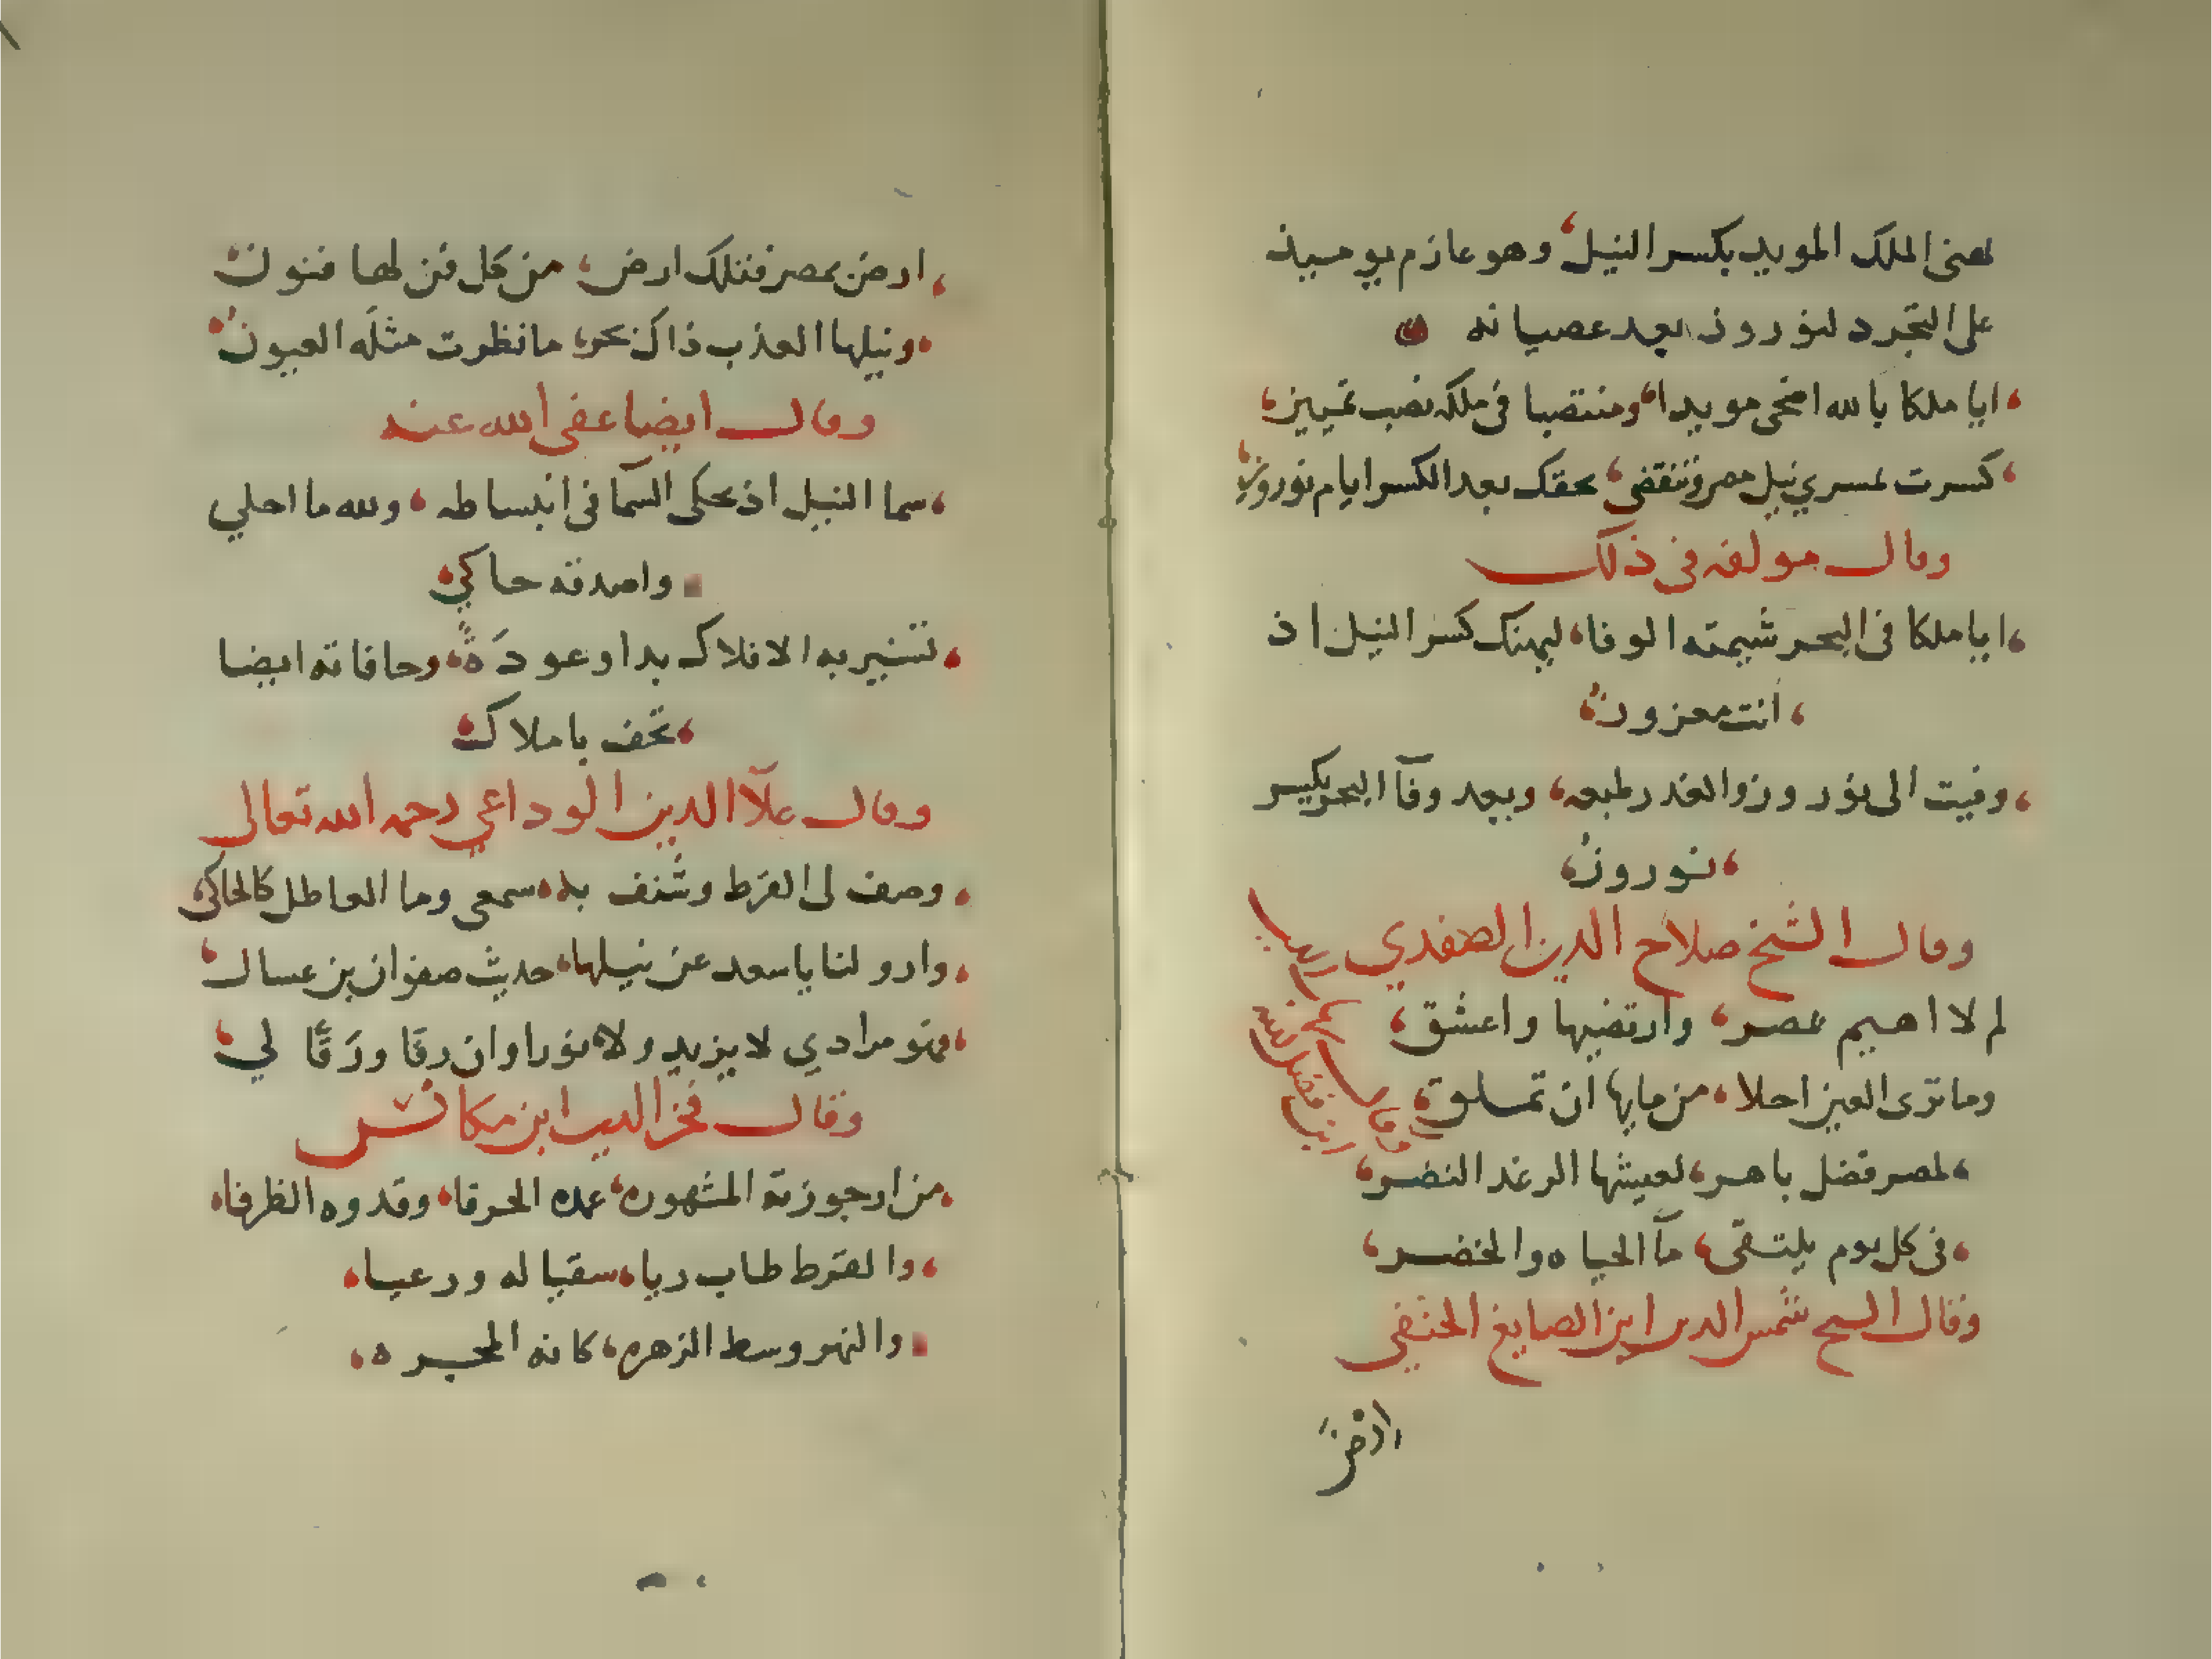 لهنى الملك المويد بكسر النيل وهو عازم يوميذ
على التجرد لنوروز بعد عصيانه
ايا ملكا بالله اضحى مويدا ومنتصبا فى ملكه نصب تمييز
كسرت بمسرى نيل مصر وتنقضى بحقك بعد الكسر ايام نوروز
وقال مولفه فى ذلك
ايا ملكا فى البحر شيمته الوفا ليهنك كسر النيل اذ
انت معزوز
وفيت الى نوروز والغدر طبعه وبعد وفآ البحر يكسر
نوروز
وقال الشيخ صلاح الدين الصفدي
لم لا اهيم بمصر وارتضيها واعشق
وما ترى العين احلا من مايها ان تملق
وقال شهاب الدين
ابن فضل الله
لمصر فضل باهر لعيشها الرغد النضر
فى كل يوم يلتقى مآ الحياه والخضر
وقال الشيخ شمس الدين ابن الصايغ الحنفى
ارض
ارض بمصر فتلك ارض من كل فن لها فنون
ونيلها العذب ذاك بحر ما نظرت مثله العيون
وقال ايضا عفى الله عنه
سما النيل اذ يحكى السما فى انبساطه ولله ما احلي
واصدقه حاكي
تسير به الافلاك بدا وعودَةً وحافاته ايضا
تحف باملاك
وقال علآ الدين الوداعي رحمه الله تعالى
وصف لى القرط وشنف به سمعى وما العاطل كالحاكى
وارو لنا يا سعد عن نيلها حديث صفوان بن عسال
فهو مرادي لا يزيد ولا ثورا وان رقا ورقا لي
وقال فخر الدين ابن مكانس
من ارجوزته المشهوره عمده الحرفا وقدوه الظرفاء
والقرط طاب ريا سقيا له ورعيا
والنهر وسط الزهره كانه المجره